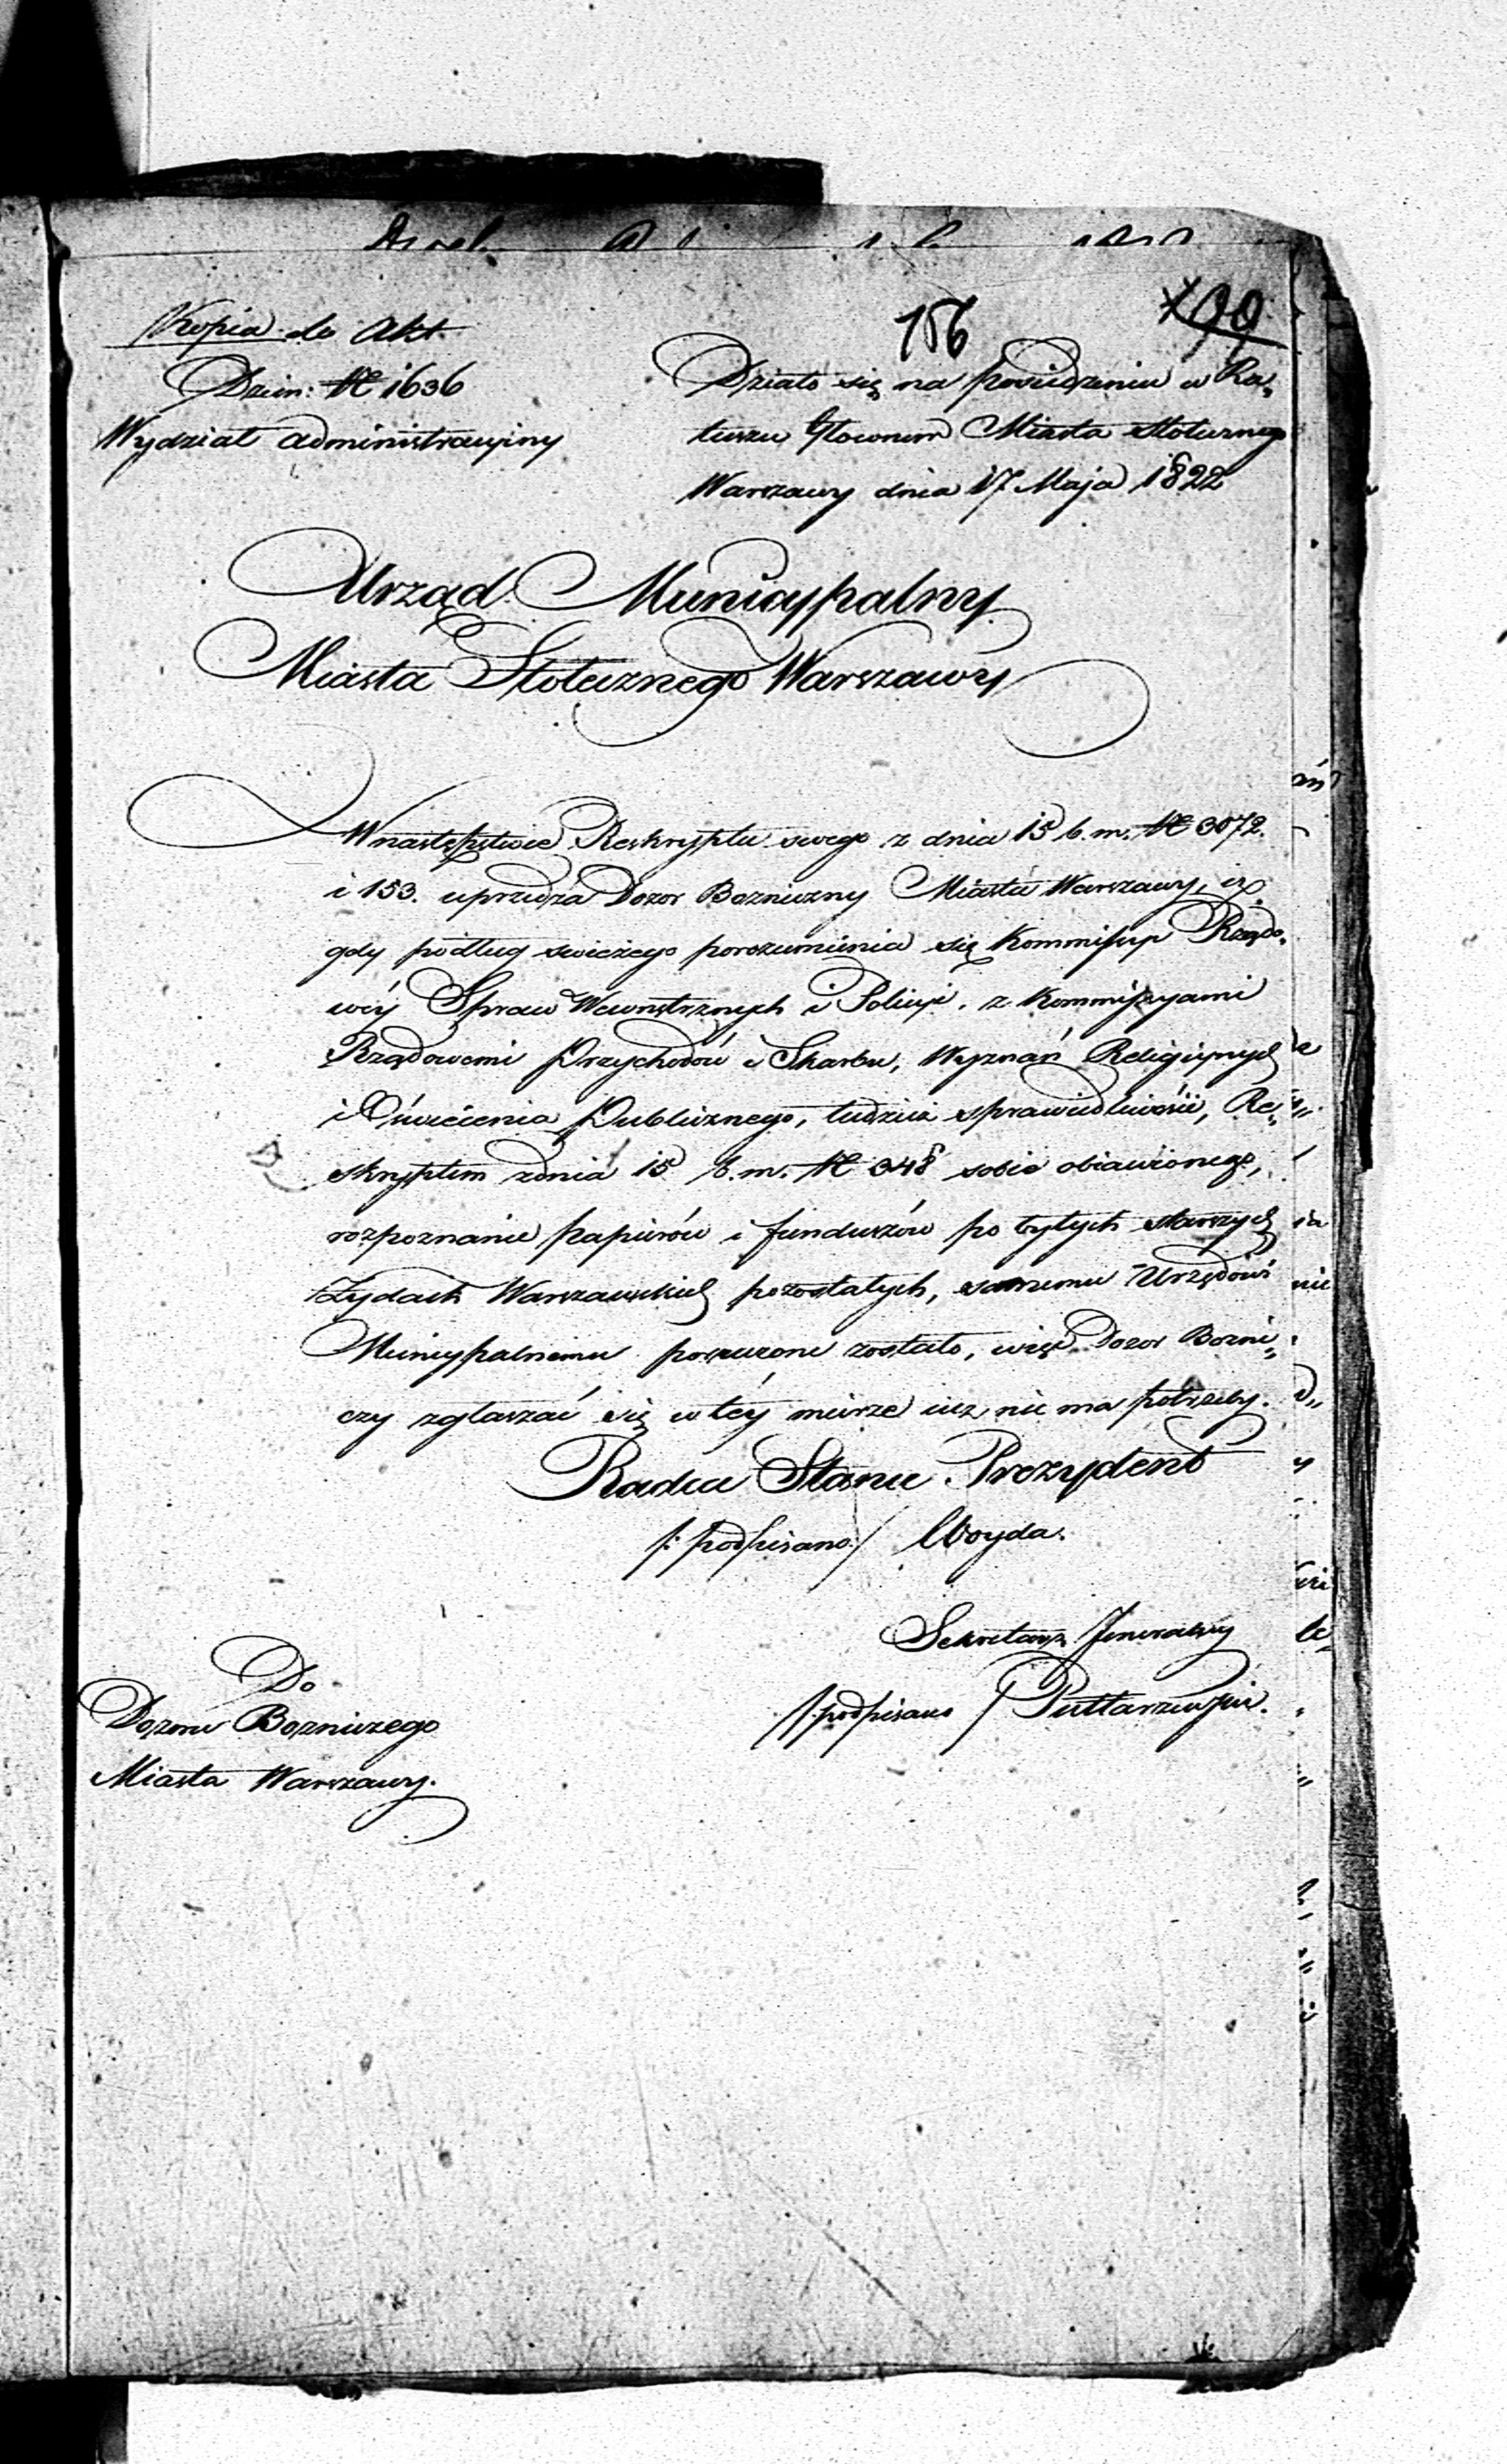 Kopia do Akt.
156
Dzien: № 1636
Działo się na posiedzeniu w Ra„
Wydział administracyiny
tuszu Głownem Miasta Stołecznego
Warszawy dnia 17 Maja 1822
Urząd Municypalny
Miasta Stołecznego Warszawy
W następstwie Reskryptu swego z dnia 15 b. m. № 3072.
i 153. uprzedza Dozor Bozniczny Miasta Warszawy, iż
gdy podług swieżego porozumienia się Kommissyi Rządo„
wéy Spraw Wewnętrznych i Policyi, z Kommissyami
Rządowemi Przychodów i Skarbu, Wyznań Religiynych
i Oświecenia Publicznego, tudzież sprawiedliwości, Re„
skryptem z dnia 15 b. m. № 348 sobie obiawionego,
rozpoznanie papierów i funduszów po byłych starszych
Żydach Warszawskich pozostałych, samemu Urzędowi
Municypalnemu poruczone zostało, więc Dozor Bozni„
czy zgłaszać się w téy mierze iuz nie ma potrzeby.
Radca Stanu Prezydent
/: podpisano:/ Woyda.
Sekretarz Jeneralny
Do
/: podpisano /
Dozoru Bozniczego
Miasta Warszawy.